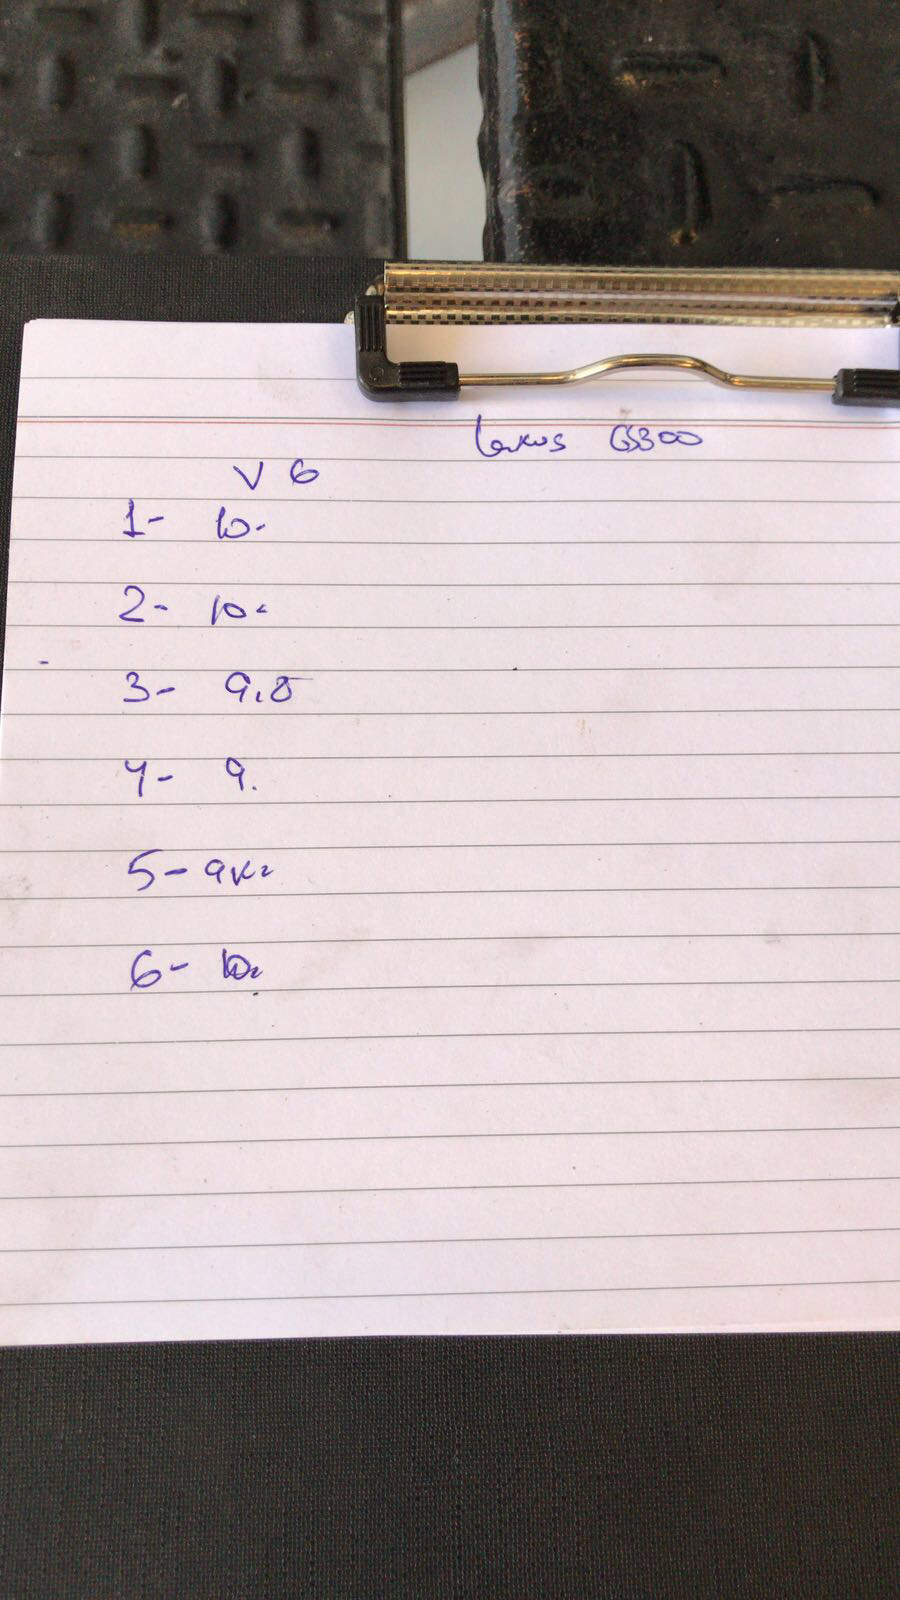 Lexus GS300
V 6
1- 10.
2- 10.
3- 9.5
4- 9.
5- 9кг
6- 10.